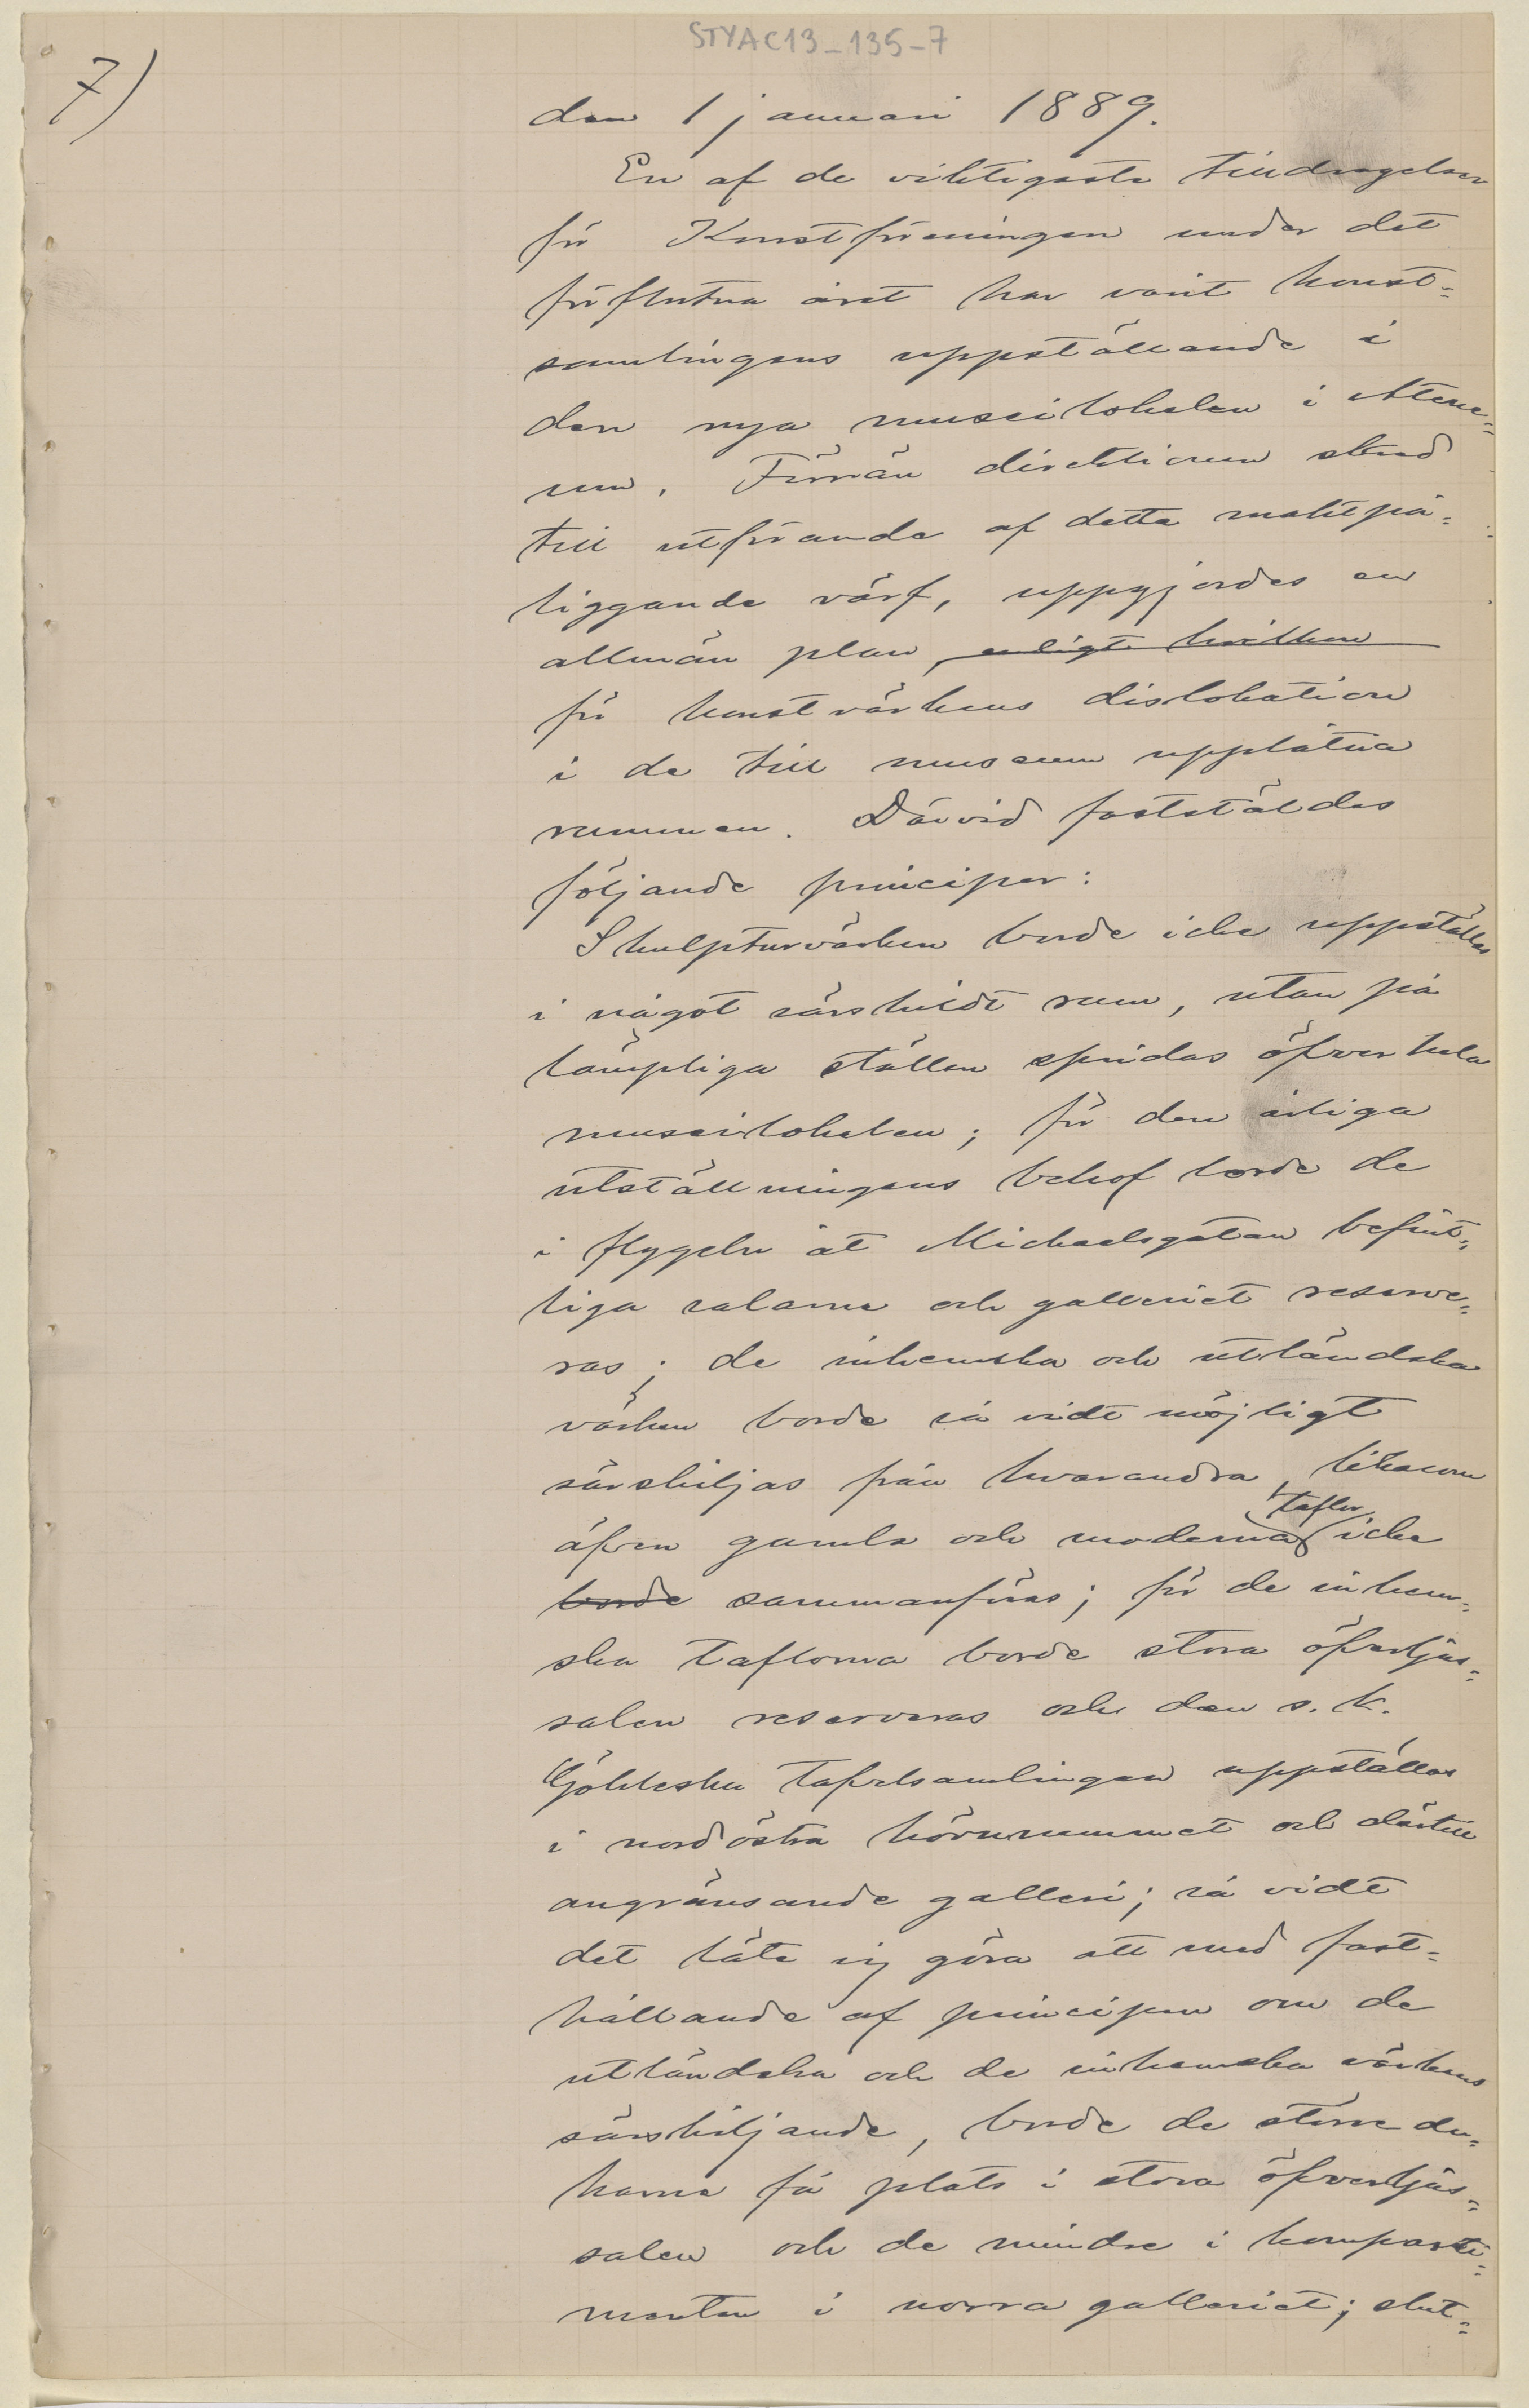 STYAC13-135-7
7)
den 1 januari 1889.
En af de viktigaste tilldragelser
för Konstföreningen under det
förflutna året har varit konst=
samlingens uppställande i
den nya museilokalen i Atene=
um. Förrän direktionen skred
till utförande af detta maktpå=
liggande värf, uppgjordes en
allmän plan, enligt hvilken
för konstvärkens dislokation
i de till museum upplåtna
rummen. Därvid fastställdes
följande principer:
Skulpturvärken borde icke uppställas
i något särskildt rum, utan på
lämpliga ställen spridas öfver hela
museilokalen; för den årliga
utställningens behof borde de
i flygeln åt Michaelsgatan befint=
liga salarna och galleriet reserve=
ras; de inhemska och utländska
värken borde så vidt möjligt
särskiljas från hvarandra, likasom
taflor
äfven gamla och moderna icke
borde sammanföras; för de inhem=
ska taflorna borde stora öfverljus=
salen reserveras och den s. k.
Göhleska tafvelsamlingen uppställas
i nordöstra hörnrummet och därtill
angränsande galleri; så vidt
det läte sig göra att med fast=
hållande af principen om de
utländska och de inhemska värkens
särskiljande, borde de större du=
karna få plats i stora öfverljus=
salen och de mindre i komparti=
menten i norra galleriet; slut=